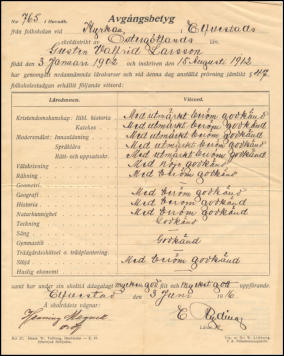 N:o 765 i Huvudk.
Avgångsbetyg
från folkskolan vid Kyrkan, Elfvestads
skoldistrikt av Östergötlands län.
Gustav Valfrid Larsson
född den 3 Januari 1902 och inskriven den 15 Augusti 1912
har genomgått nedannämnda lärokurser och vid denna dag anställd prövning jämlikt § 47
folkskolestadgan erhållit följande vitsord:
Läroämnen. Vitsord.
Kristendomskunskap: Bibl. historia Med utmärkt beröm godkänd
Katekes Med utmärkt beröm godkänd
Modersmålet: Innanläsning Med utmärkt beröm godkänd
Språklära Med utmärkt beröm godkänd
Rätt- och uppsatsskr. Med utmärkt beröm godkänd
Välskrivning Med nöje godkänd
Räkning Med beröm godkänd
Geometri
Geografi Med beröm godkänd
Historia Med beröm godkänd
Naturkunnighet Med beröm godkänd
Teckning Godkänd
Sång
Gymnastik Godkänd
Trädgårdsskötsel o. trädplantering
Slöjd Med beröm godkänd
Huslig ekonomi
samt har under sin skoltid ådagalagt mycken god flit och mycket gott uppförande.
Elfvestad den 3 Juni 1916
Å skolrådets vägnar:
Henning
E. Ryding
Lärare